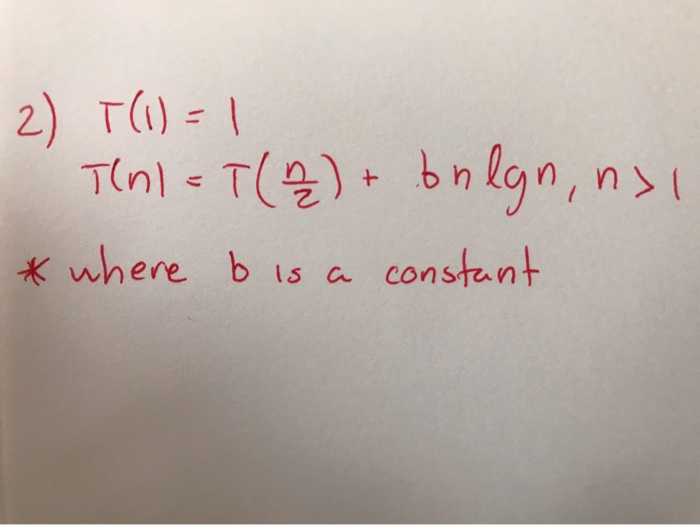 2) T(1) = 1
T(n) = T(n/2) + bn lgn, n > 1
* where b is a constant